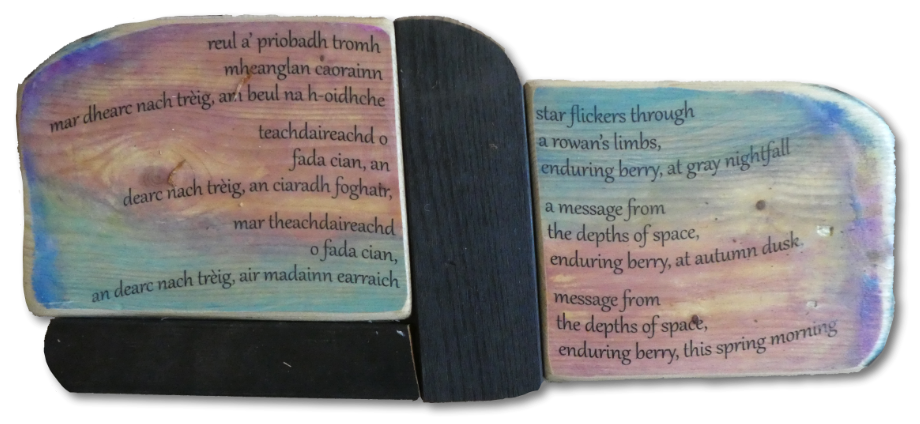 reul a' priobadh tromh
mheanglan caorainn
mar dhearc nach trèig, ann beul na h-oidhche
teachdaireachd o
fada cian, an
dearc nach trèig, an ciaradh foghair,
mar theachdaireachd
o fada cian,
an dearc nach trèig, air madainn earraich
star flickers through
a rowan's limbs,
enduring berry, at gray nightfall
a message from
the depths of space,
enduring berry, at autumn dusk.
message from
the depths of space,
enduring berry, this spring morning